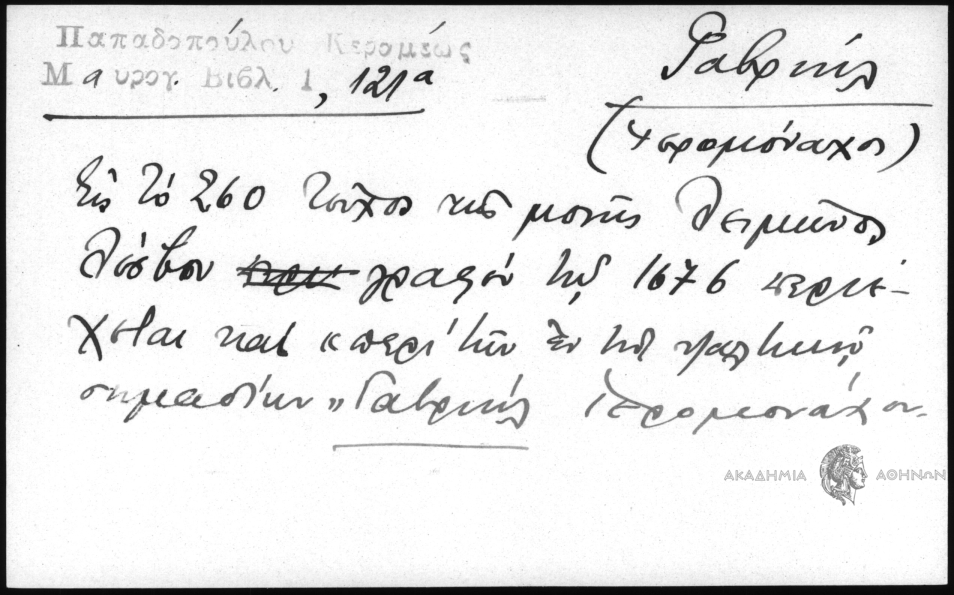 Παπαδοπούλου Κεραμέως
Μαυρογ. Βιβλ. 1, 121α
Γαβριήλ
(Ἱερομόναχος)
Εἰς τὸ 260 τεῦχος τῆς μονῆς Λειμῶνος
Λέσβου γραφὲν τῷ 1676 περιέ-
χεται καὶ «περὶ τῶν ἐν τῇ ψαλτικῇ
σημαδίων» Γαβριὴλ Ἱερομονάχου.
ΑΚΑΔΗΜΙΑ ΑΘΗΝΩΝ